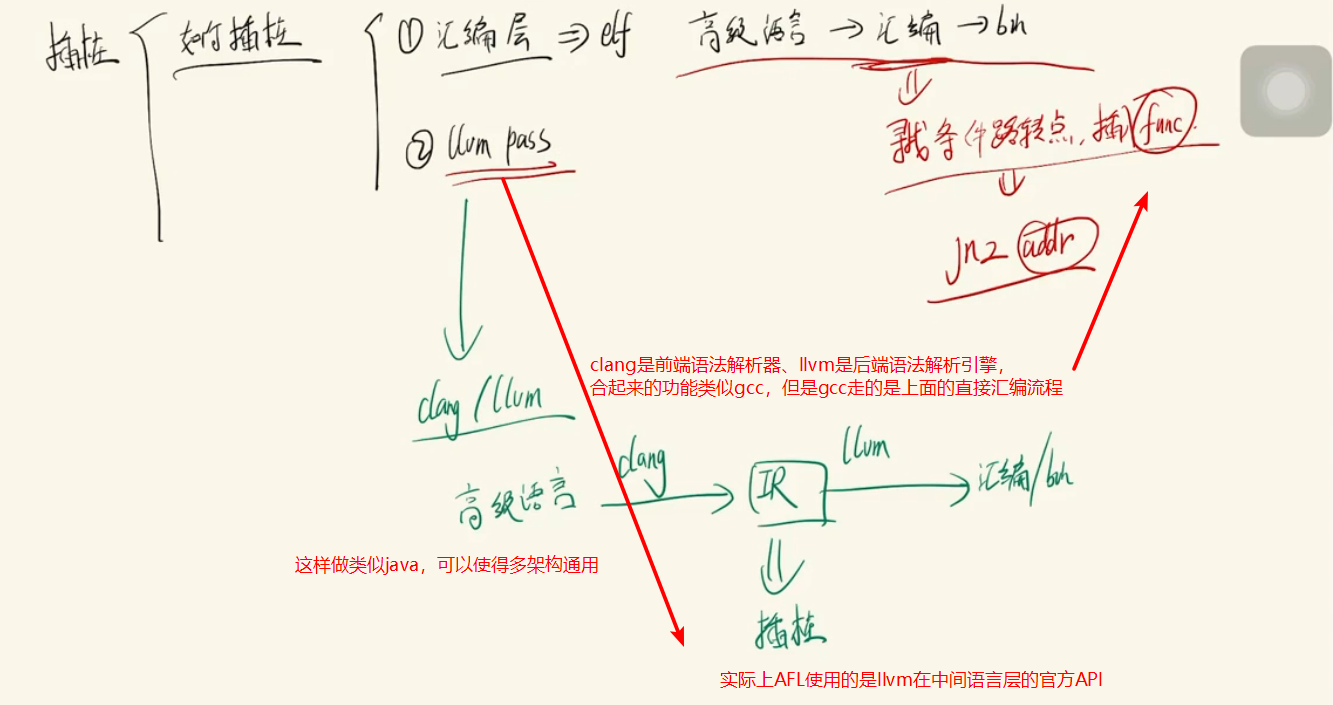 插桩
如何插桩
① 汇编层 ⇒ elf
高级语言 → 汇编 → bin
寻找条件跳转点,插 func.
② llvm pass
jnz addr
clang是前端语法解析器、llvm是后端语法解析引擎,
合起来的功能类似gcc,但是gcc走的是上面的直接汇编流程
clang / llvm
高级语言 clang → IR llvm → 汇编/bin
这样做类似java,可以使得多架构通用
插桩
实际上AFL使用的是llvm在中间语言层的官方API